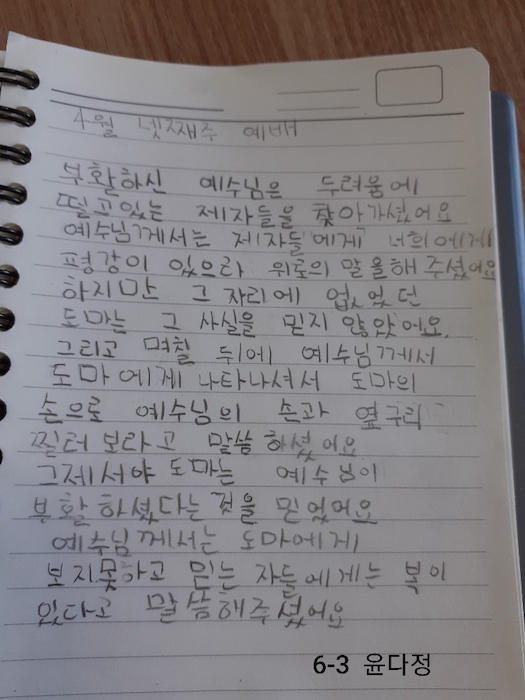 4월 넷째주 예배
부활하신 예수님은 두려움에
떨고있는 제자들을 찾아가셨어요
예수님께서는 제자들에게 너희에게
평강이 있으라 위로의 말을해주셨어요
하지만 그 자리에 없었던
도마는 그 사실을 믿지 않았어요.
그리고 며칠 뒤에 예수님께서
도마에게 나타나셔서 도마의
손으로 예수님의 손과 옆구리
찔러보라고 말씀하셨어요
그제서야 도마는 예수님이
부활하셨다는 것을 믿었어요
예수님께서는 도마에게
보지못하고 믿는 자들에게는 복이
있다고 말씀해주셨어요
6-3 윤다정